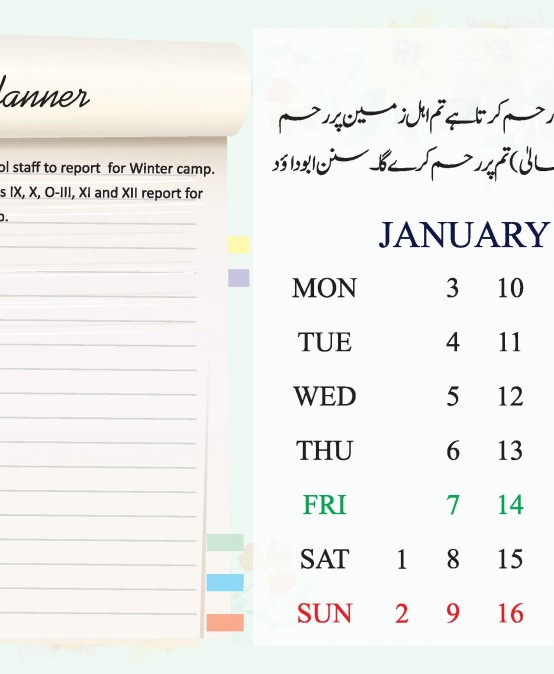 lanner
ol staff to report for Winter camp.
s IX, X, O-III, XI and XII report for
p.
رحم کرتا ہے تم اہل زمین پر رحم
عالیٰ) تم پر رحم کرے گا۔ سنن ابوداؤد
JANUARY
MON 3 10
TUE 4 11
WED 5 12
THU 6 13
FRI 7 14
SAT 1 8 15
SUN 2 9 16